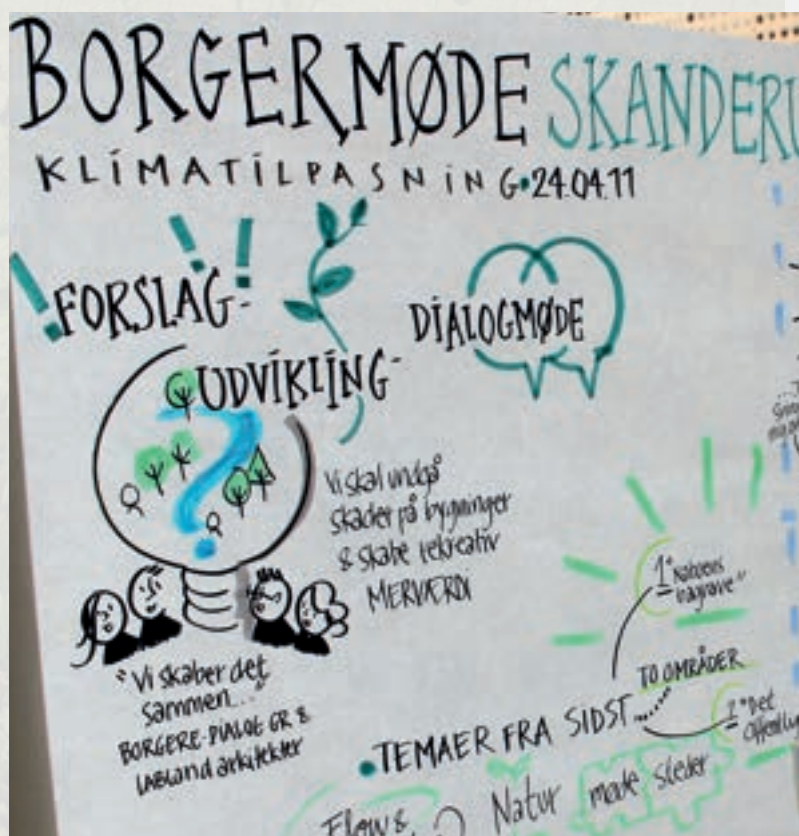 BORGERMØDE SKANDERU
KLIMATILPASNING•24.04.11
FORSLAG-
UDVIKLING-
DIALOGMØDE
Vi skal undgå
skader på bygninger
& skabe rekreativ
MERVÆRDI
"Vi skaber det
sammen..."
BORGERE-DIALOG GR &
LABland arkitekter
1°
TO OMRÅDER
2° "Det
offentlig
•TEMAER FRA SIDST.....
Flow &
Natur møde steder